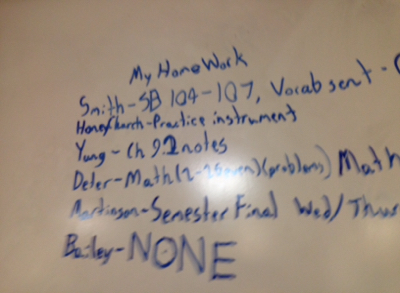 My HomeWork
Smith-SB 104-107, Vocab sent-
Practice instrument
Yung-Ch 9.2 notes
Deter-Math(2-28even)(problems) Math
Martinson-Semester Final Wed/Thurs
Bailey-NONE